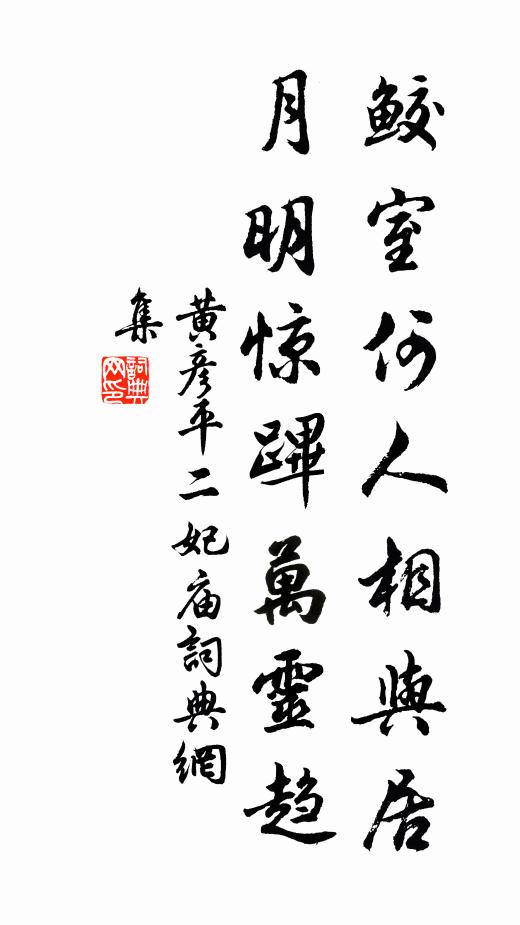 鮫室何人相與居
月明惊蹕萬靈趋
黄彦平二妃庙詞典網
集
詞典網印